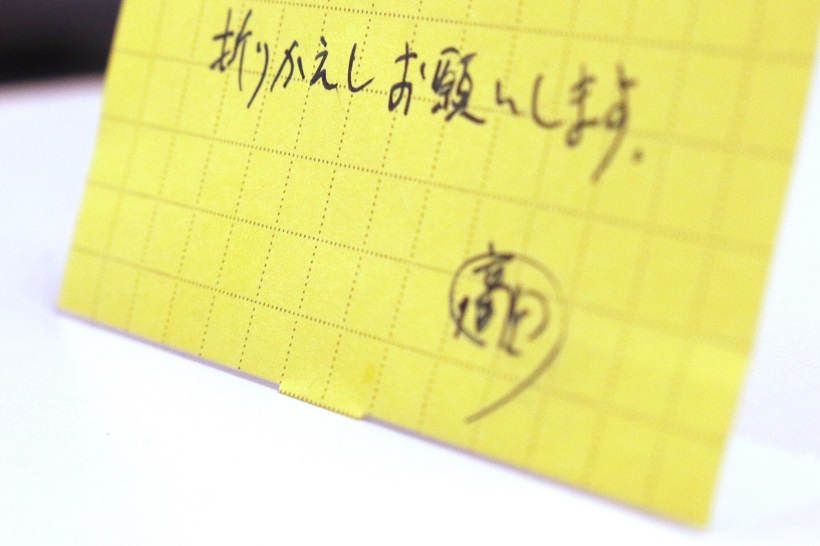 折りかえしお願いします。
高田